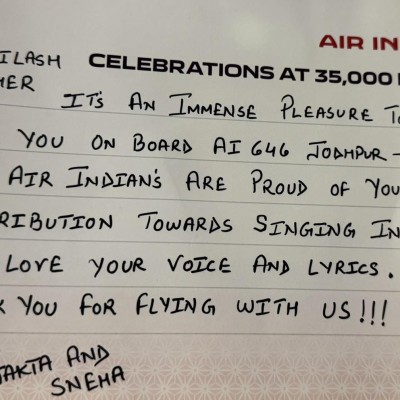 AIR IN
ILASH
CELEBRATIONS AT 35,000
HER
IT'S AN IMMENSE PLEASURE TO
YOU ON BOARD AI 646 JODHPUR -
AIR INDIAN'S ARE PROUD OF YOU
RIBUTION TOWARDS SINGING IN
LOVE YOUR VOICE AND LYRICS.
K YOU FOR FLYING WITH US!!!
AKTA AND
SNEHA